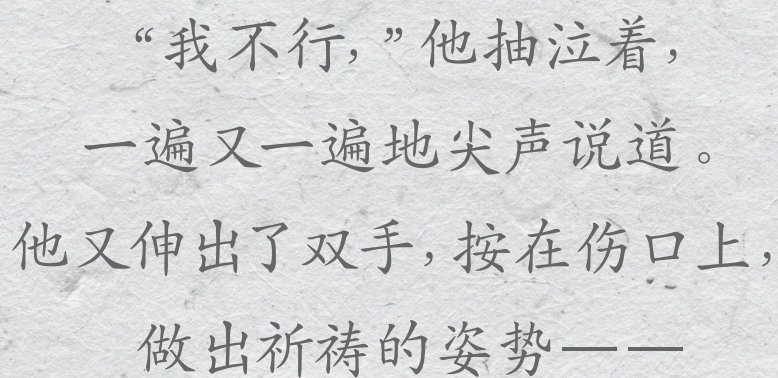 “我不行，”他抽泣着，
一遍又一遍地尖声说道。
他又伸出了双手，按在伤口上，
做出祈祷的姿势——